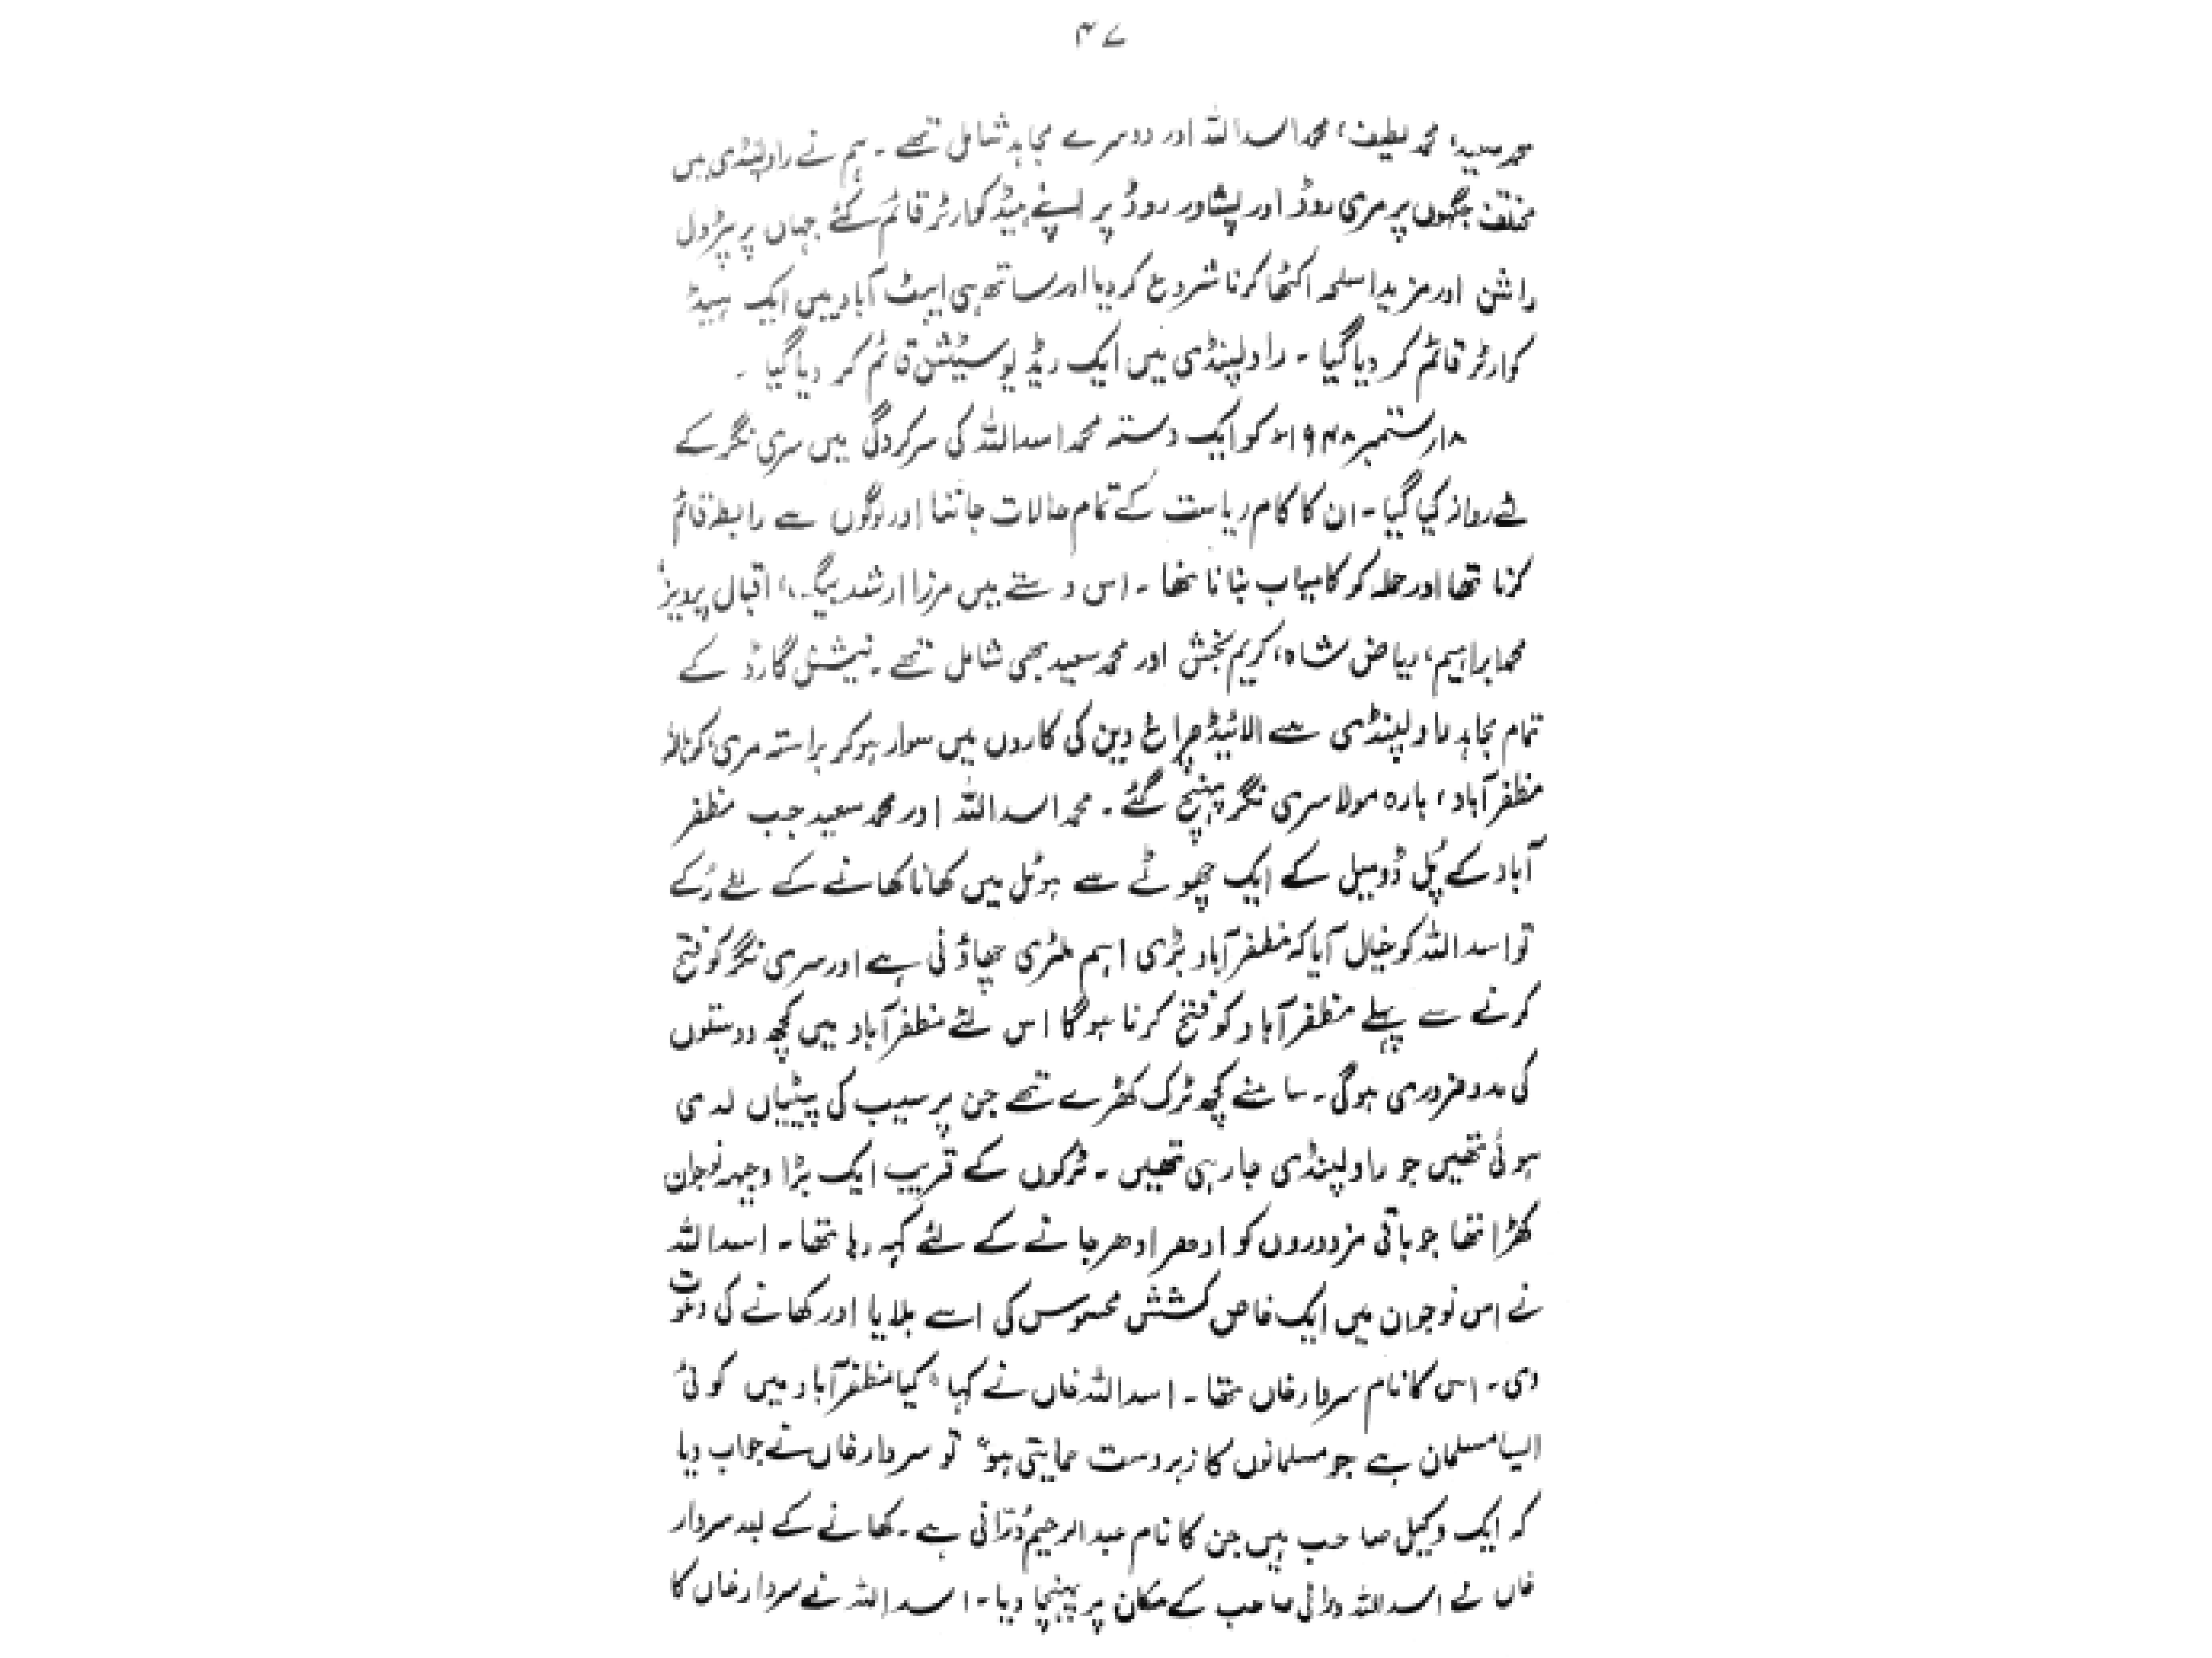 ۴۷
محمد سعید، محمد لطیف، محمد اسد اللہ اور دوسرے مجاہد شامل تھے۔ ہم نے راولپنڈی میں
مختلف جگہوں پر مری روڈ اور پشاور روڈ پر اپنے ہیڈ کوارٹر قائم کئے جہاں پر پٹرول
راشن اور مزید اسلحہ اکٹھا کرنا شروع کر دیا اور ساتھ ہی ایبٹ آباد میں ایک ہیڈ
کوارٹر قائم کر دیا گیا ۔ راولپنڈی میں ایک ریڈیو سٹیشن قائم کر دیا گیا ۔
۱۸ ستمبر ۱۹۴۸ء کو ایک دستہ محمد اسد اللہ کی سرکردگی میں سری نگر کے
لئے روانہ کیا گیا ۔ ان کا کام ریاست کے تمام حالات جاننا اور لوگوں سے رابطہ قائم
کرنا تھا اور حملہ کو کامیاب بنانا تھا ۔ اس دستے میں مرزا ارشد بیگ، اقبال پرویز
محمد ابراہیم، ریاض شاہ، کریم بخش اور محمد سعید بھی شامل تھے ۔ نیشنل گارڈ کے
تمام مجاہد راولپنڈی سے الائیڈ چراغ دین کی کاروں میں سوار ہوکر براستہ مری، کوہالہ
مظفر آباد، بارہ مولا سری نگر پہنچ گئے ۔ محمد اسد اللہ اور محمد سعید جب مظفر
آباد کے پُل ڈومیل کے ایک چھوٹے سے ہوٹل میں کھانا کھانے کے لئے رُکے
تو اسد اللہ کو خیال آیا کہ مظفر آباد بڑی اہم ملٹری چھاؤنی ہے اور سری نگر کو فتح
کرنے سے پہلے مظفر آباد کو فتح کرنا ہوگا اس لئے مظفر آباد میں کچھ دوستوں
کی مدد ضروری ہوگی ۔ سامنے کچھ ٹرک کھڑے تھے جن پر سیب کی پیٹیاں لدی
ہوئی تھیں جو راولپنڈی جا رہی تھیں ۔ ٹرکوں کے قریب ایک بڑا وجیہہ نوجوان
کھڑا تھا جو باقی مزدوروں کو ادھر ادھر جانے کے لئے کہہ رہا تھا ۔ اسد اللہ
نے اس نوجوان میں ایک خاص کشش محسوس کی اسے بلایا اور کھانے کی دعوت
دی ۔ اس کا نام سردار خاں تھا ۔ اسد اللہ خاں نے کہا "کیا مظفر آباد میں کوئی
ایسا مسلمان ہے جو مسلمانوں کا زبردست حمایتی ہو" تو سردار خاں نے جواب دیا
کہ ایک وکیل صاحب ہیں جن کا نام عبد الرحیم دُرّانی ہے ۔ کھانے کے بعد سردار
خاں نے اسد اللہ درانی صاحب کے مکان پر پہنچا دیا ۔ اسد اللہ نے سردار خاں کا